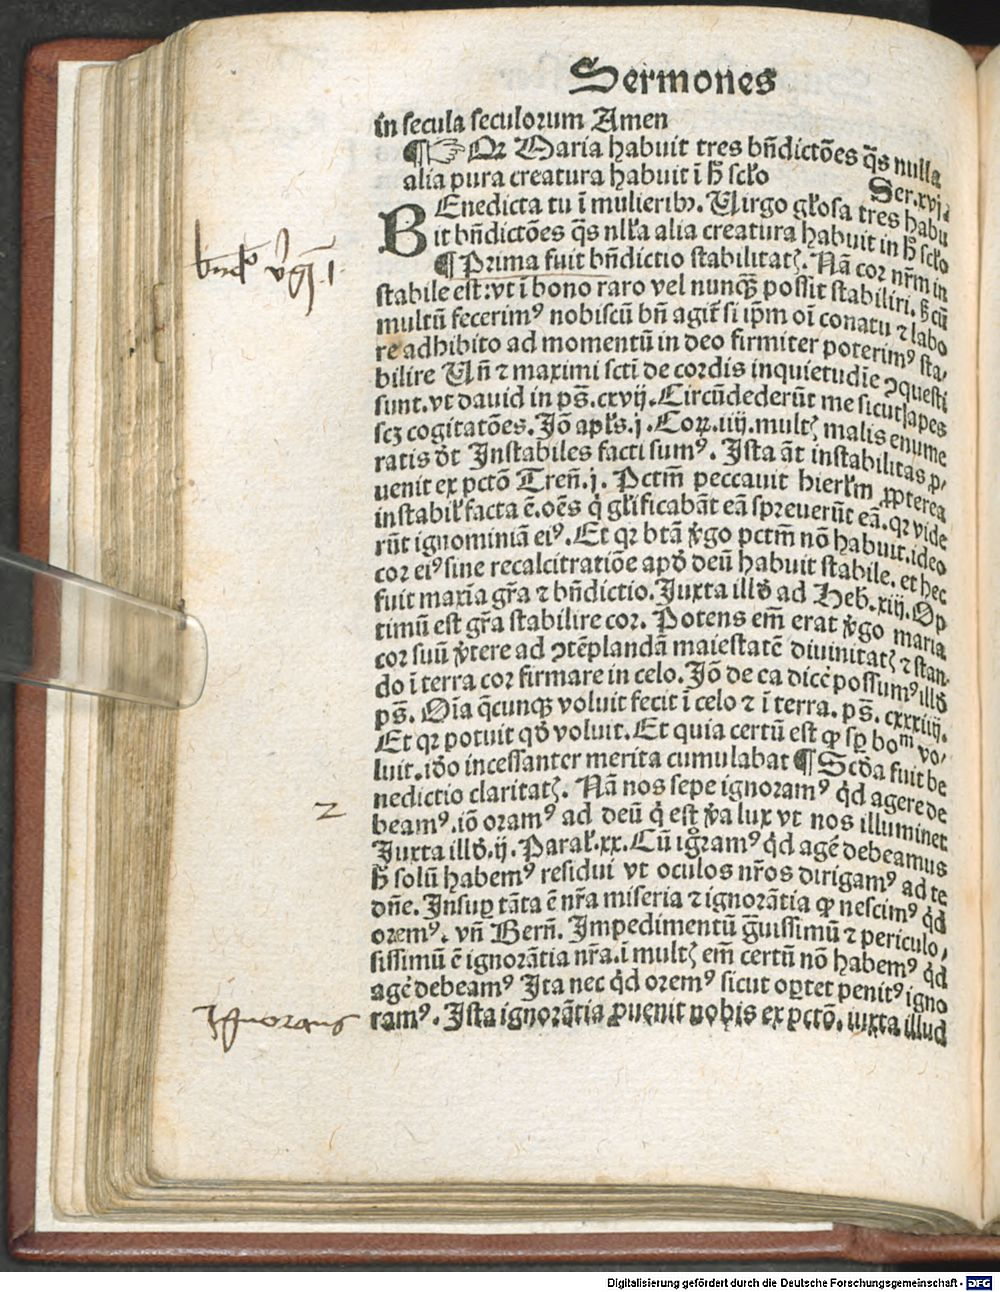 Sermones
in secula seculorum Amen
¶☞ Qꝛ Maria habuit tres bn̄dictōes q̄s nulla
alia pura creatura habuit ī h̄ sclo Ser.xvj.
BEnedicta tu ī mulieribꝫ. Uirgo glosa tres habu
it bn̄dictōes q̄s nlla alia creatura habuit in h̄ sclo
¶ Prima fuit bn̄dictio stabilitatꝭ. Nā cor nr̄m in
stabile est: vt ī bono raro vel nunqꝫ possit stabiliri. h̄ cū
multū fecerimꝰ nobiscū bn̄ agit̄ si ip̄m oī conatu ⁊ labo
re adhibito ad momentū in deo firmiter poterimꝰ sta-
bilire Un̄ ⁊ maximi scti de cordis inquietudīe ꝯquesti
sunt. vt dauid in ps̄. cxvij. Circūdederūt me sicut apes
scꝫ cogitatōes. Jō apls. j. Coꝝ. iiij. multꝭ malis enume
ratis dt̄ Instabiles facti sumꝰ. Ista āt instabilitas ꝓ-
uenit ex pctō Tren̄. j. Pctm̄ peccauit hierlm ꝓpterea
instabil̄ facta ē. oēs q̇ glificabāt eā spreuerūt eā. qꝛ vide
rūt ignominiā eiꝰ. Et qꝛ btā v̄go pctm̄ nō habuit. ideo
cor eiꝰ sine recalcitratiōe apd̓ deū habuit stabile. et hec
fuit maxīa gr̄a ⁊ bn̄dictio. Iuxta illd̓ ad Heb. xiij. Op
timū est gr̄a stabilire cor. Potens em̄ erat v̄go maria
cor suū v̄tere ad ꝯtēplandā maiestatē diuinitatꝭ ⁊ stan-
do ī terra cor firmare in celo. Jō de ea dicē possumꝰ illd̓
ps̄. Oīa q̄cunqꝫ voluit fecit ī celo ⁊ ī terra. ps̄. cxxxiiij.
Et qꝛ potuit qd̓ voluit. Et quia certū est ꝙ sꝑ boᵐ vo-
luit. id̓o incessanter merita cumulabat ¶ Scd̓a fuit be
nedictio claritatꝭ. Nā nos sepe ignoramꝰ qd̓ agere de
beamꝰ. iō oramꝰ ad deū q̇ est v̄a lux vt nos illuminet
Iuxta illd̓. ij. Paral. xx. Cū igr̄amꝰ qd̓ agē debeamus
h̄ solū habemꝰ residui vt oculos nr̄os dirigamꝰ ad te
dn̄e. Insuꝑ tāta ē nr̄a miseria ⁊ ignorātia ꝙ nescimꝰ qd̓
oremꝰ. vn̄ Bern̄. Impedimentū gͣuissimū ⁊ periculo-
sissimū ē ignorātia nr̄a. ī multꝭ em̄ certū nō habemꝰ qd̓
agē debeamꝰ Ita nec qd̓ oremꝰ sicut oꝑtet penitꝰ igno
ramꝰ. Ista ignorātia ꝓuenit nobis ex pctō. iuxta illud
2
Ignorans
Digitalisierung gefördert durch die Deutsche Forschungsgemeinschaft - DFG